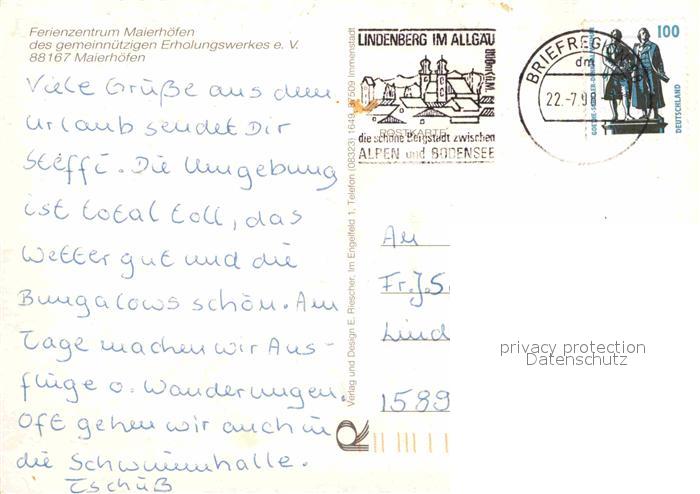 Ferienzentrum Maierhöfen
des gemeinnützigen Erholungswerkes e. V.
88167 Maierhöfen
Viele Grüße aus dem
Urlaub sendet Dir
Steffi. Die Umgebung
ist total toll, das
Wetter gut und die
Bungalows schön. Am
Tage machen wir Aus-
flüge o. Wanderungen.
Oft gehen wir auch in
die Schwimmhalle.
Tschüß
Verlag und Design E. Riescher, Im Engelfeld 1, Telefon (08323) 1649, 87509 Immenstadt
LINDENBERG IM ALLGÄU
800m ü.M.
POSTKARTE
die schöne Bergstadt zwischen
ALPEN und BODENSEE
BRIEFREGION
dm
22.-7.98
100
GOETHE-SCHILLER-DENKMAL
DEUTSCHLAND
An
Fr. J. S
Lind
1589
privacy protection
Datenschutz